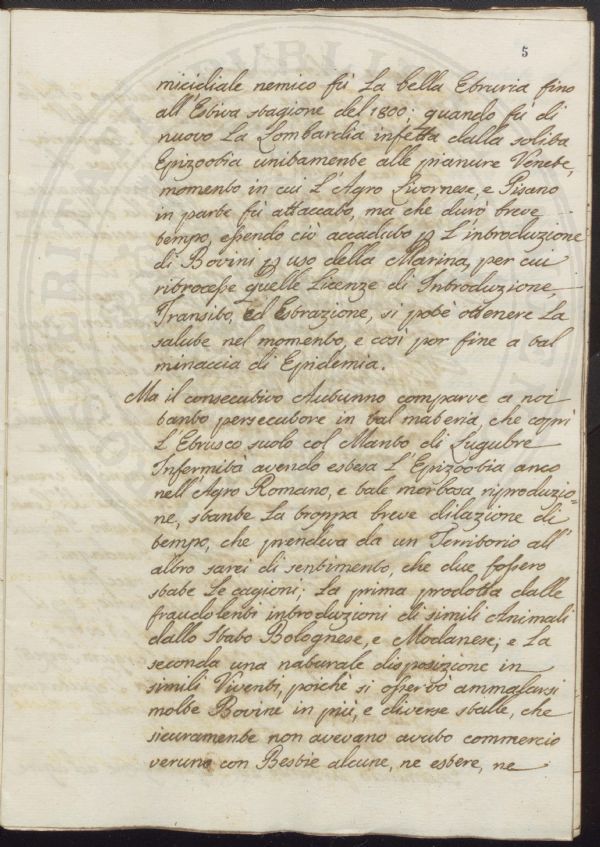 5
micidiale nemico fù La bella Etruria fino
all'Estiva stagione del 1800; quando fù di
nuovo La Lombardia infetta dalla solita
Epizootia unitamente alle pianure Venete,
momento in cui L'Agro Livornese, e Pisano
in parte fù attaccato, ma che durò breve
tempo, essendo ciò accaduto p L'introduzione
di Bovini p uso della Marina, per cui
ritrocesse quelle Licenze di Introduzione,
Transito, ed Estrazione, si potè ottenere La
salute nel momento, e così por fine a tal
minaccia di Epidemia.
Ma il consecutivo Autunno comparve a noi
tanto persecutore in tal materia, che coprì
L'Etrusco suolo col Manto di Lugubre
Infermità avendo estesa L'Epizootia anco
nell'Agro Romano, e tale morbosa riproduzio=
ne, stante La troppa breve dilazione di
tempo, che prendeva da un Territorio all'
altro sarei di sentimento, che due fossero
state Le cagioni; La prima prodotta dalle
fraudolenti introduzioni di simili Animali
dallo Stato Bolognese, e Modanese; e La
seconda una naturale disposizione in
simili Viventi, poichè si osservò ammalarsi
molte Bovine in più, e diverse stalle, che
sicuramente non avevano avuto commercio
veruno con Bestie alcune, ne estere, ne